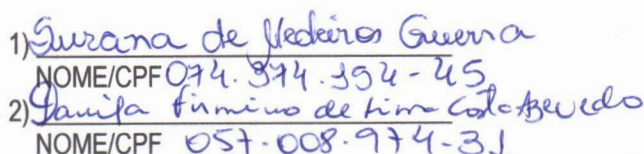 1) Suzana de Medeiros Guerra
NOME/CPF 074.374.194-45
2) Danila Firmino de Lima Costa Azevedo
NOME/CPF 057.008.974-31